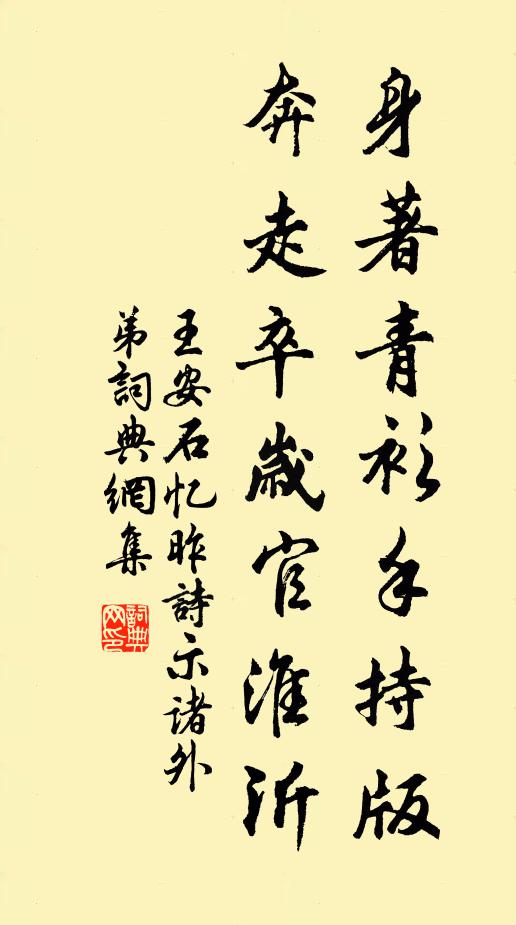 身著青衫手持版
奔走卒歲官淮沂
王安石忆昨詩示諸外
弟詞典網集
詞典網印